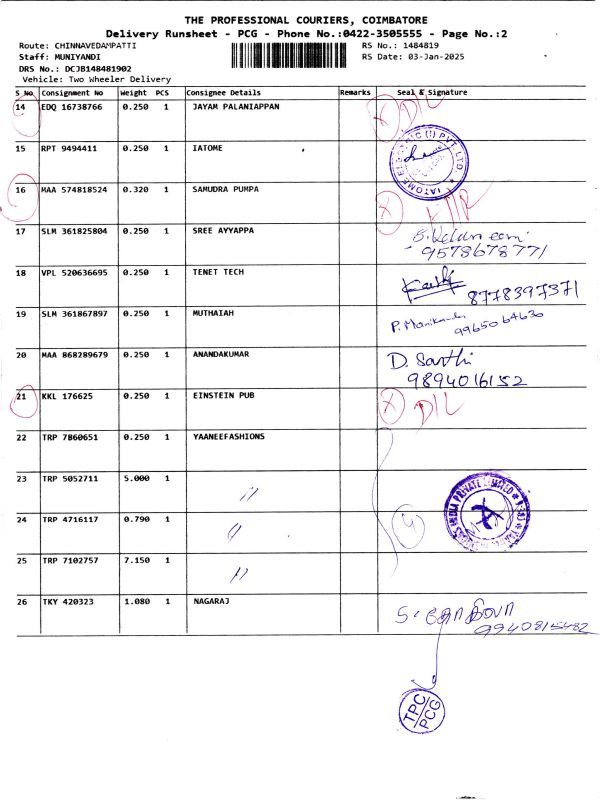 THE PROFESSIONAL COURIERS, COIMBATORE
Delivery Runsheet - PCG - Phone No.:0422-3505555 - Page No.:2
Route: CHINNAVEDAMPATTI RS No.: 1484819
Staff: MUNIYANDI RS Date: 03-Jan-2025
DRS No.: DCJB148481902
Vehicle: Two Wheeler Delivery
S No. Consignment No Weight PCS Consignee Details Remarks Seal & Signature
14 EDQ 16738766 0.250 1 JAYAM PALANIAPPAN X D/L
15 RPT 9494411 0.250 1 IATOME
16 MAA 574818524 0.320 1 SAMUDRA PUMPA X
17 SLM 361825804 0.250 1 SREE AYYAPPA
9578678771
18 VPL 520636695 0.250 1 TENET TECH
8778397371
19 SLM 361867897 0.250 1 MUTHAIAH P. Manikandan
9965064630
20 MAA 868289679 0.250 1 ANANDAKUMAR D. Sarthi
9894016152
21 KKL 176625 0.250 1 EINSTEIN PUB X D/L
22 TRP 7860651 0.250 1 YAANEEFASHIONS
23 TRP 5052711 5.000 1 "
24 TRP 4716117 0.790 1 " 4
25 TRP 7102757 7.150 1 "
26 TKY 420323 1.080 1 NAGARAJ
9940815482
TPC
PCG